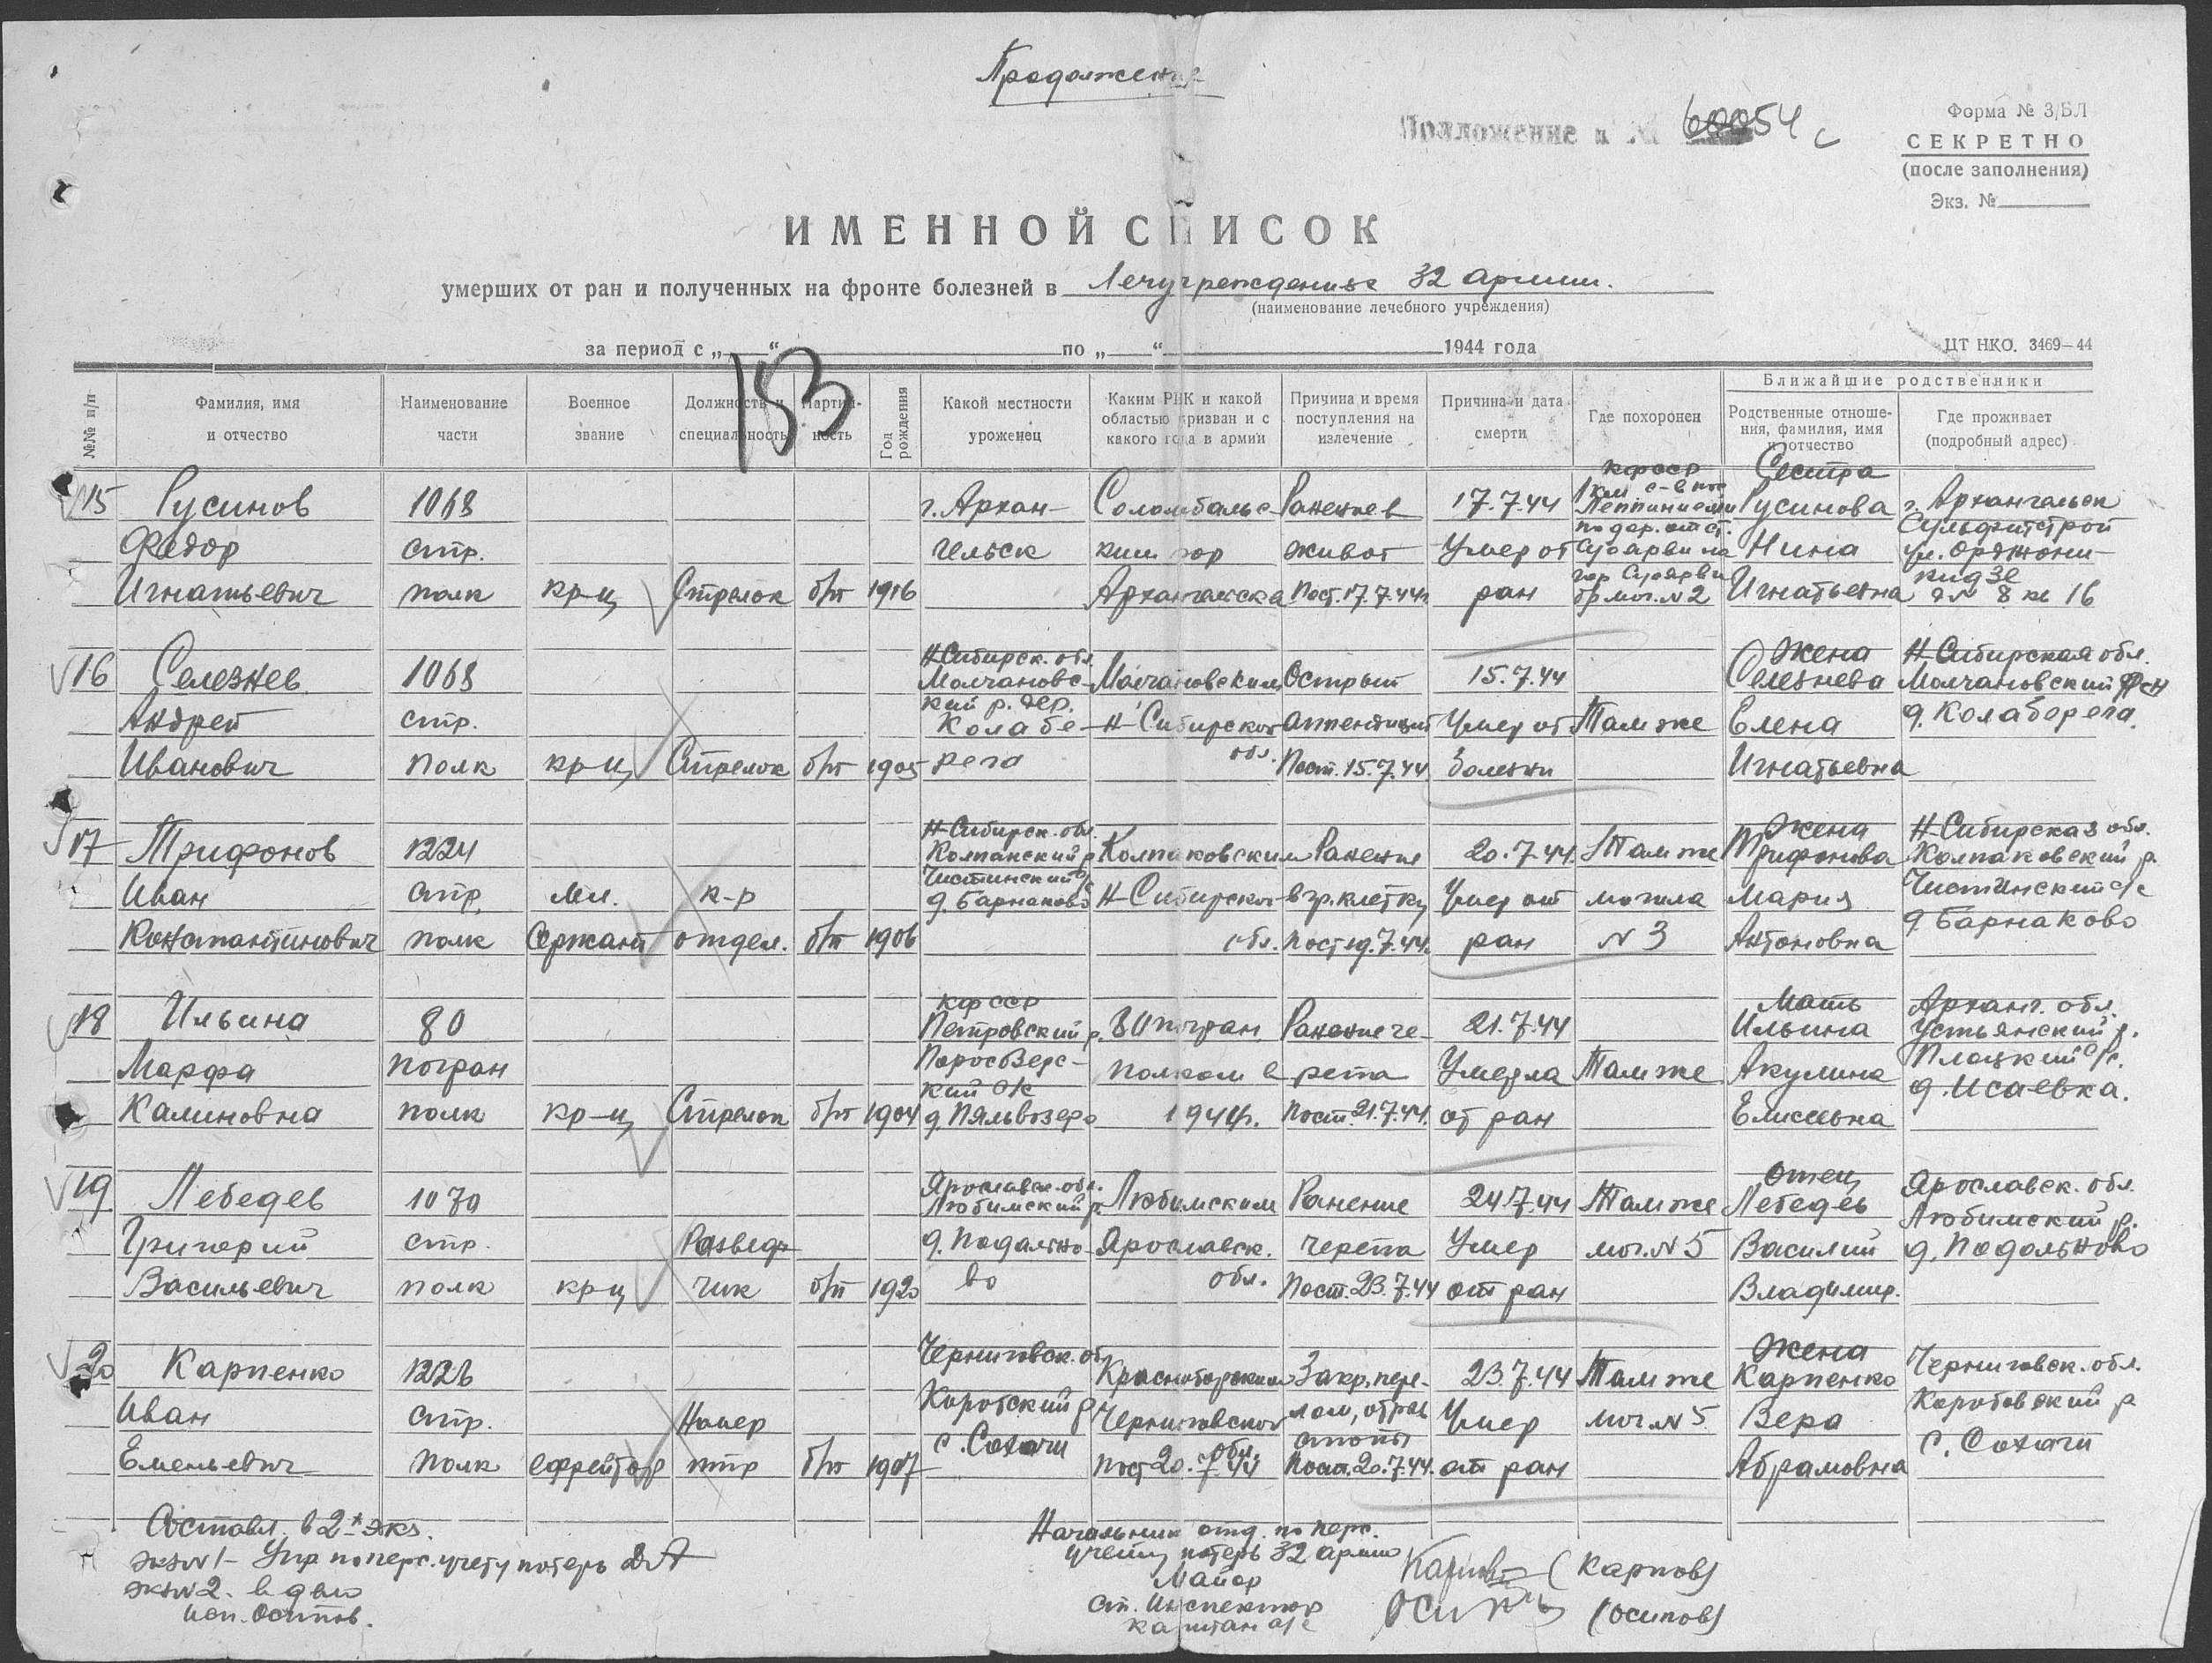 Продолжение
Приложение к № 60054 с
Форма № 3/БЛ
СЕКРЕТНО
(после заполнения)
Экз. №
ИМЕННОЙ СПИСОК
умерших от ран и полученных на фронте болезней в Лечучреждениях 32 армии.
(наименование лечебного учреждения)
за период с „ “ по „ “ 1944 года
ЦТ НКО. 3469—44
153
№№ п/п
Фамилия, имя и отчество
Наименование части
Военное звание
Должность и специальность
Партийность
Год рождения
Какой местности уроженец
Каким РВК и какой областью призван и с какого года в армии
Причина и время поступления на излечение
Причина и дата смерти
Где похоронен
Ближайшие родственники
Родственные отношения, фамилия, имя и отчество
Где проживает (подробный адрес)
15 Русинов Федор Игнатьевич
1068 стр. полк
кр-ц
Стрелок
б/п
1916
г. Архангельск
Соломбальским гор Архангельска
Ранение в живот Пост. 17.7.44г
17.7.44 Умер от ран
КФССР 1 км с-в
Сестра Русинова Нина Игнатьевна
г. Архангельск Сульфитстрой ул. Орджоникидзе дN 8 кв 16
16 Селезнев Андрей Иванович
1068 стр. полк
кр-ц
Стрелок
б/п
1905
Н-Сибирск. обл. Молчановский р. дер. Колаберега
Молчановским Н-Сибирской обл.
Острый аппендицит Пост. 15.7.44
15.7.44 Умер от болезни
Там же
Жена Селезнева Елена Игнатьевна
Н-Сибирская обл. Молчановский р-н д. Колаберега
17 Трифонов Иван Константинович
1224 стр. полк
Мл. Сержант
к-р отдел.
б/п
1906
Н-Сибирск. обл. Колпакский р. Чистинский д. Барнаково
Колпаковским Н-Сибирской обл.
Ранение в гр. клетку Пост 19.7.44.
20.7.44. Умер от ран
Там же могила N 3
Жена Трифонова Мария Антоновна
Н-Сибирская обл. Колпаковский р. Чистинский с/с д Барнаково
18 Ильина Марфа Калиновна
80 погран полк
кр-ц
Стрелок
б/п
1904
КФССР Петровский р. Поросозерский д. Пяльвозеро
80 погран. полком в 1944г.
Ранение черепа Пост. 21.7.44.
21.7.44 Умерла от ран
Там же
Мать Ильина Акулина Елисеевна
Арханг. обл. Устьянский р. с/с. д. Исаевка.
19 Лебедев Григорий Васильевич
1070 стр. полк
кр-ц
Разведчик
б/п
1920
Ярославск. обл. Любимский р. д. Подольново
Любимским Ярославск. обл.
Ранение черепа Пост. 23.7.44
24.7.44 Умер от ран
Там же мог. N 5
Отец Лебедев Василий Владимир.
Ярославск. обл. Любимский р. д. Подольново
20 Карпенко Иван Емельевич
1226 стр. полк
ефрейтор
Номер птр
б/п
1907
Черниговск. обл Коробский р с. Сохачи
Черниговской обл. Пост 20.7.44
Закр. перелом, отрыв стопы Пост. 20.7.44.
23.7.44 Умер от ран
Там же мог. N 5
Жена Карпенко Вера Абрамовна
Черниговск. обл. Коробовский р с. Сохачи
Составл. в 2х экз.
экз N 1 - Упр по перс. учету потерь ДА
экз N 2. в дело
исп. Осипов.
Начальник отд. по перс.
учету потерь 32 армии
Майор Карпов (Карпов)
ст. Инспектор
капитан а/с (Осипов)